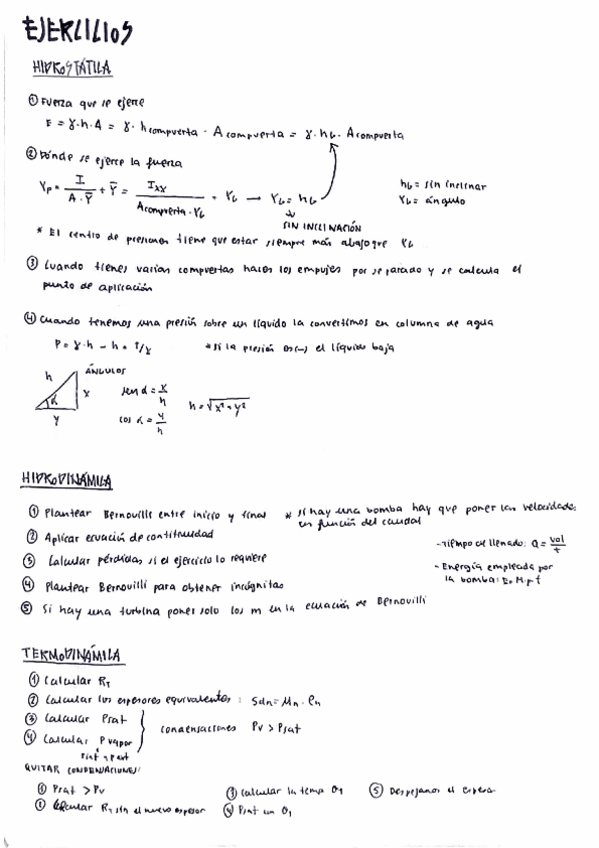 EJERCICIOS
HIDROSTÁTICA
① Fuerza que se ejerce
E = γ·h·A = γ· h compuerta · A compuerta = γ· hG · A compuerta
② Dónde se ejerce la fuerza
Yp = I / A·Ȳ + Ȳ = Ixx / A compuerta · YG + YG → YG = hG
SIN INCLINACIÓN
hG = sin inclinar
YG = ángulo
* El centro de presiones tiene que estar siempre más abajo que YG
③ Cuando tienes varias compuertas haces los empujes por separado y se calcula el
punto de aplicación
④ Cuando tenemos una presión sobre un líquido la convertimos en columna de agua
P = γ·h → h = P/γ
* si la presión es (-) el líquido baja
ÁNGULOS
h
x
α
y
sen α = x/h
cos α = y/h
h = √x² + y²
HIDRODINÁMICA
① Plantear Bernouilli entre inicio y final
* si hay una bomba hay que poner las velocidades
en función del caudal
② Aplicar ecuación de contituidad
③ Calcular pérdidas si el ejercicio lo requiere
④ Plantear Bernouilli para obtener incógnitas
⑤ Si hay una turbina poner solo los m en la ecuación de Bernouilli
- Tiempo de llenado: Q = vol/t
- Energía empleada por
la bomba:
TERMODINÁMICA
① Calcular RT
② Calcular los espesores equivalentes: Sdn = Mn · en
③ Calcular Psat
④ Calcular Pvapor
condensaciones Pv > Psat
QUITAR CONDENSACIONES:
① Psat > Pv
② Calcular RT sin el nuevo espesor
③ Calcular la temp θ1
④ Psat con θ1
⑤ Despejamos el espesor